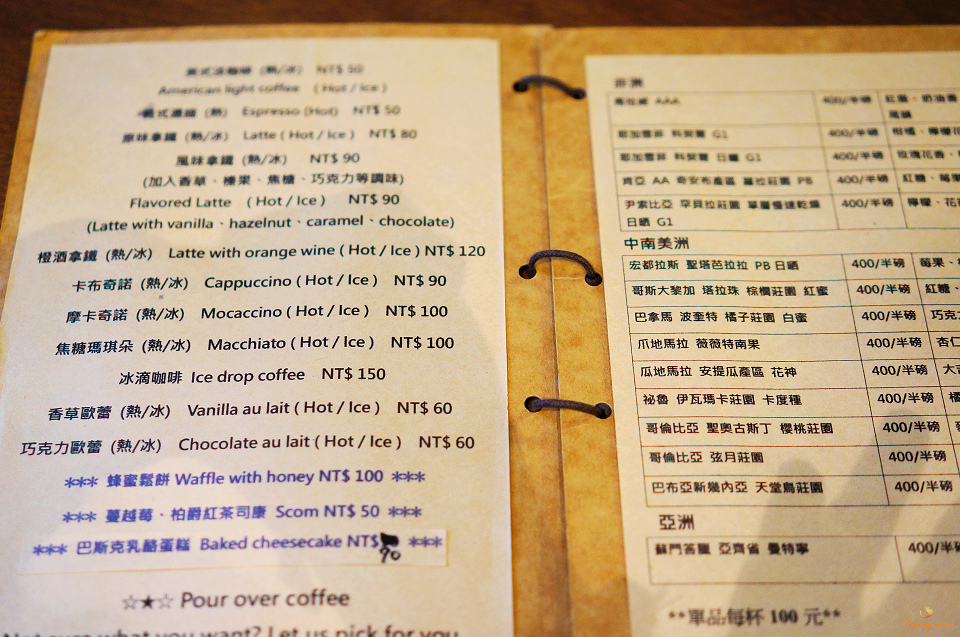 美式淡咖啡 (熱/冰) NT$ 50
American light coffee ( Hot / Ice )
義式濃縮 (熱) Espresso (Hot) NT$ 50
原味拿鐵 (熱/冰) Latte ( Hot / Ice ) NT$ 80
風味拿鐵 (熱/冰) NT$ 90
(加入香草、榛果、焦糖、巧克力等調味)
Flavored Latte ( Hot / Ice ) NT$ 90
(Latte with vanilla、hazelnut、caramel、chocolate)
橙酒拿鐵 (熱/冰) Latte with orange wine ( Hot / Ice ) NT$ 120
卡布奇諾 (熱/冰) Cappuccino ( Hot / Ice ) NT$ 90
摩卡奇諾 (熱/冰) Mocaccino ( Hot / Ice ) NT$ 100
焦糖瑪琪朵 (熱/冰) Macchiato ( Hot / Ice ) NT$ 100
冰滴咖啡 Ice drop coffee NT$ 150
香草歐蕾 (熱/冰) Vanilla au lait ( Hot / Ice ) NT$ 60
巧克力歐蕾 (熱/冰) Chocolate au lait ( Hot / Ice ) NT$ 60
*** 蜂蜜鬆餅 Waffle with honey NT$ 100 ***
*** 蔓越莓、柏爵紅茶司康 Scom NT$ 50 ***
*** 巴斯克乳酪蛋糕 Baked cheesecake NT$ 90 ***
☆★☆ Pour over coffee
Not sure what you want? Let us pick for you
非洲
馬拉威 AAA 400/半磅 紅棗、奶油香
耶加雪菲 科契爾 G1 400/半磅 柑橘、檸檬花
耶加雪菲 科契爾 日曬 G1 400/半磅 玫瑰花香、
肯亞 AA 奇安布產區 羅拉莊園 PB 400/半磅 紅糖、莓果
衣索比亞 罕貝拉莊園 單層慢速乾燥 400/半磅 檸檬、花
日曬 G1
中南美洲
宏都拉斯 聖塔芭拉拉 PB 日曬 400/半磅 莓果、
哥斯大黎加 塔拉珠 棕櫚莊園 紅蜜 400/半磅 紅糖、
巴拿馬 波奎特 橘子莊園 白蜜 400/半磅 巧克
瓜地馬拉 薇薇特南果 400/半磅 杏仁
瓜地馬拉 安提瓜產區 花神 400/半磅
祕魯 伊瓦瑪卡莊園 卡度種 400/半磅
哥倫比亞 聖奧古斯丁 櫻桃莊園 400/半磅
哥倫比亞 弦月莊園 400/半磅
巴布亞新幾內亞 天堂鳥莊園 400/半磅
亞洲
蘇門答臘 亞齊省 曼特寧 400/半
**單品每杯 100 元**